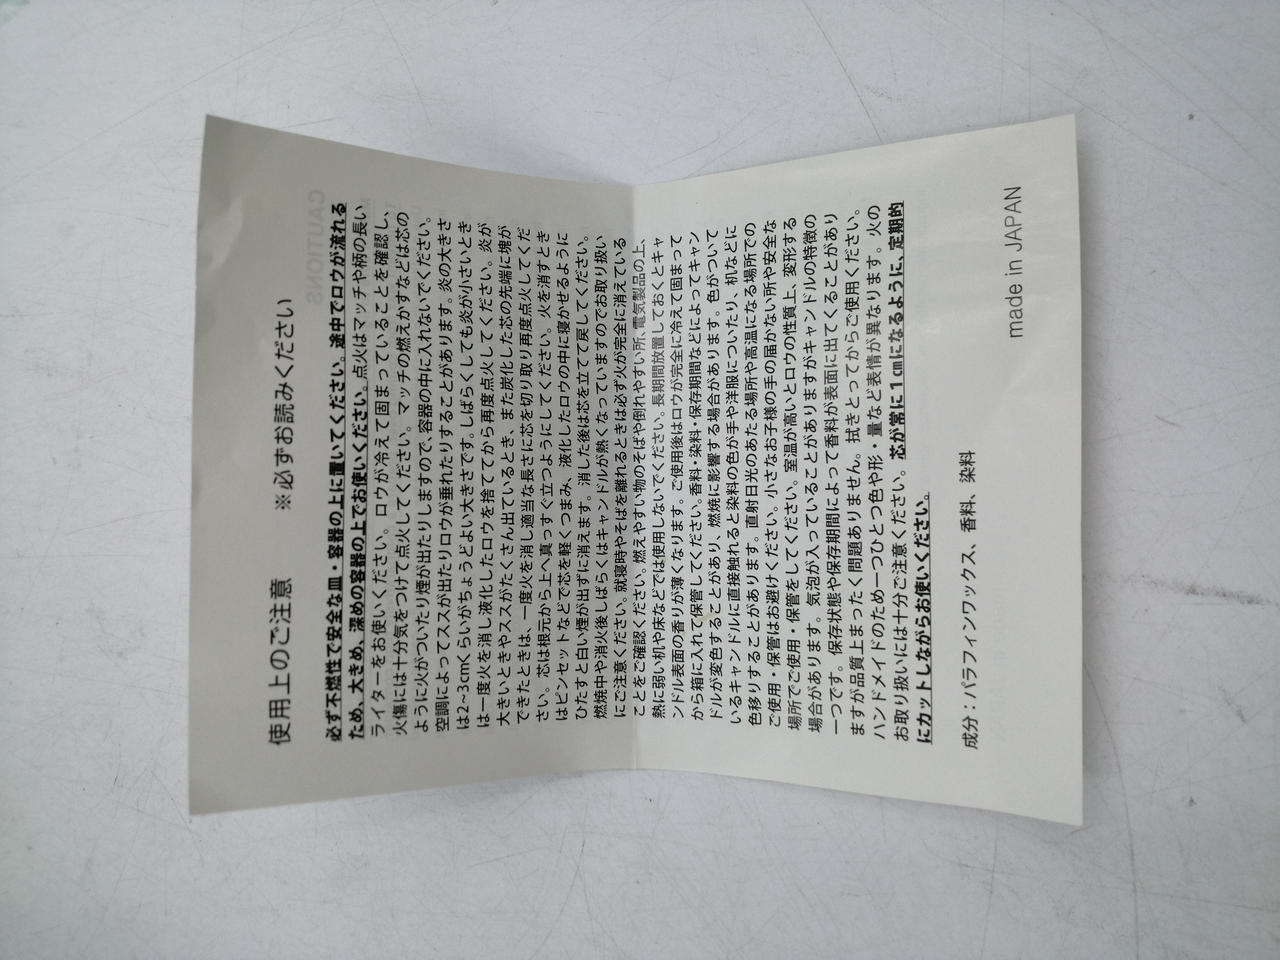 使用上のご注意　※必ずお読みください
必ず不燃性で安全な皿・容器の上に置いてください。途中でロウが流れる
ため、大きめ、深めの容器の上でお使いください。点火はマッチや柄の長い
ライターをお使いください。ロウが冷えて固まっていることを確認し、
火傷には十分気をつけて点火してください。マッチの燃えかすなどは芯の
ように火がついたり煙が出たりしますので、容器の中に入れないでください。
空調によってススが出たりロウが垂れたりすることがあります。炎の大きさ
は2〜3cmくらいがちょうどよい大きさです。しばらくしても炎が小さいとき
は一度火を消し液化したロウを捨ててから再度点火してください。炎が
大きいときやススがたくさん出ているとき、また炭化した芯の先端に塊が
できたときは、一度火を消し適当な長さに芯を切り取り再度点火してくだ
さい。芯は根元から上へ真っすぐ立つようにしてください。火を消すとき
はピンセットなどで芯を軽くつまみ、液化したロウの中に寝かせるように
ひたすと白い煙が出ずに消えます。消した後は芯を立てて戻してください。
燃焼中や消火後しばらくはキャンドルが熱くなっていますのでお取り扱い
にご注意ください。就寝時やそばを離れるときは必ず火が完全に消えている
ことをご確認ください。燃えやすい物のそばや倒れやすい所、電気製品の上、
熱に弱い机や床などでは使用しないでください。長期間放置しておくとキャ
ンドル表面の香りが薄くなります。ご使用後はロウが完全に冷えて固まって
から箱に入れて保管してください。香料・染料・保存期間などによってキャン
ドルが変色することがあり、燃焼に影響する場合があります。色がついて
いるキャンドルに直接触れると染料の色が手や洋服についたり、机などに
色移りすることがあります。直射日光のあたる場所や高温になる場所での
ご使用・保管はお避けください。小さなお子様の手の届かない所や安全な
場所でご使用・保管をしてください。室温が高いとロウの性質上、変形する
場合があります。気泡が入っていることがありますがキャンドルの特徴の
一つです。保存状態や保存期間によって香料が表面に出てくることがあり
ますが品質上まったく問題ありません。拭きとってからご使用ください。
ハンドメイドのため一つひとつ色や形・量など表情が異なります。火の
お取り扱いには十分ご注意ください。芯が常に1cmになるように、定期的
にカットしながらお使いください。
成分：パラフィンワックス、香料、染料
made in JAPAN